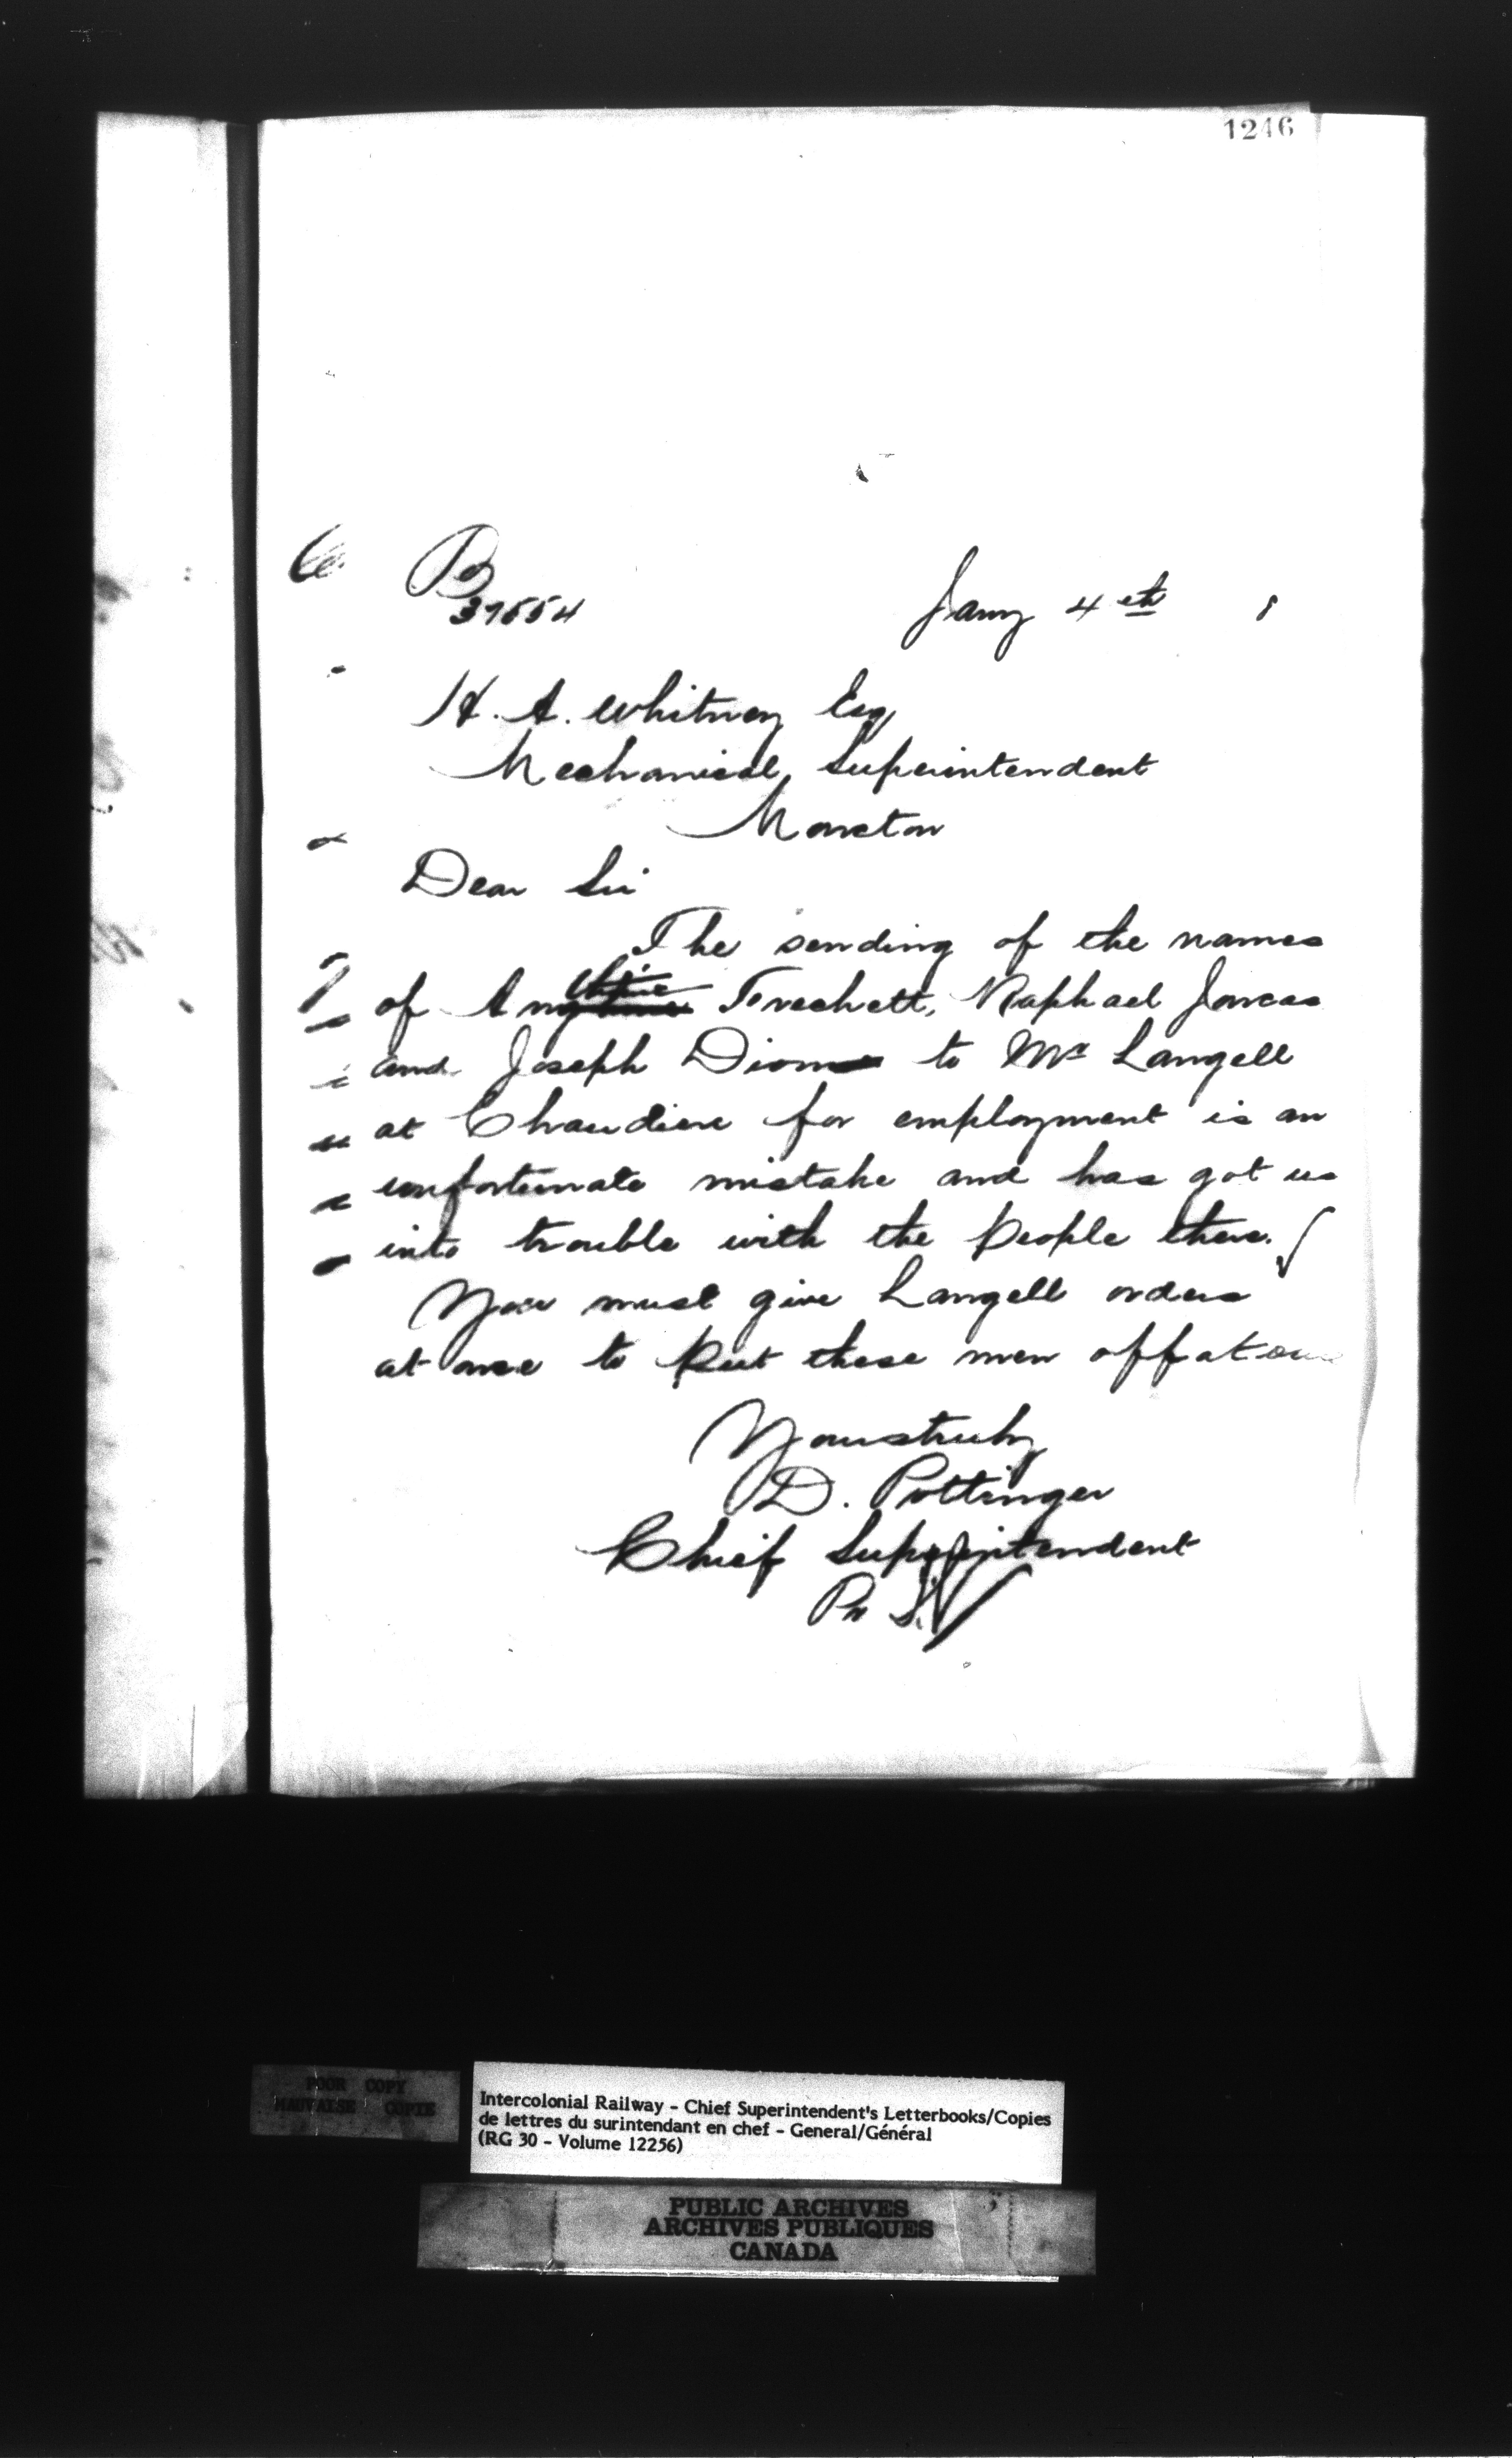 1246
B
37554
Jany 4th
H. A. Whitney Esq
Mechanical Superintendent
Moncton
Dear Sir
The sending of the names
of Trechett, Raphael Joncas
and Joseph Dion to Mr Langell
at Chaudiere for employment is an
unfortunate mistake and has got us
into trouble with the people there.
You must give Langell orders
at once to put these men off at once
Yours truly
D. Pottinger
Chief Superintendent
Pr
POOR COPY
MAUVAISE COPIE
Intercolonial Railway - Chief Superintendent's Letterbooks/Copies
de lettres du surintendant en chef - General/Général
(RG 30 - Volume 12256)
PUBLIC ARCHIVES
ARCHIVES PUBLIQUES
CANADA